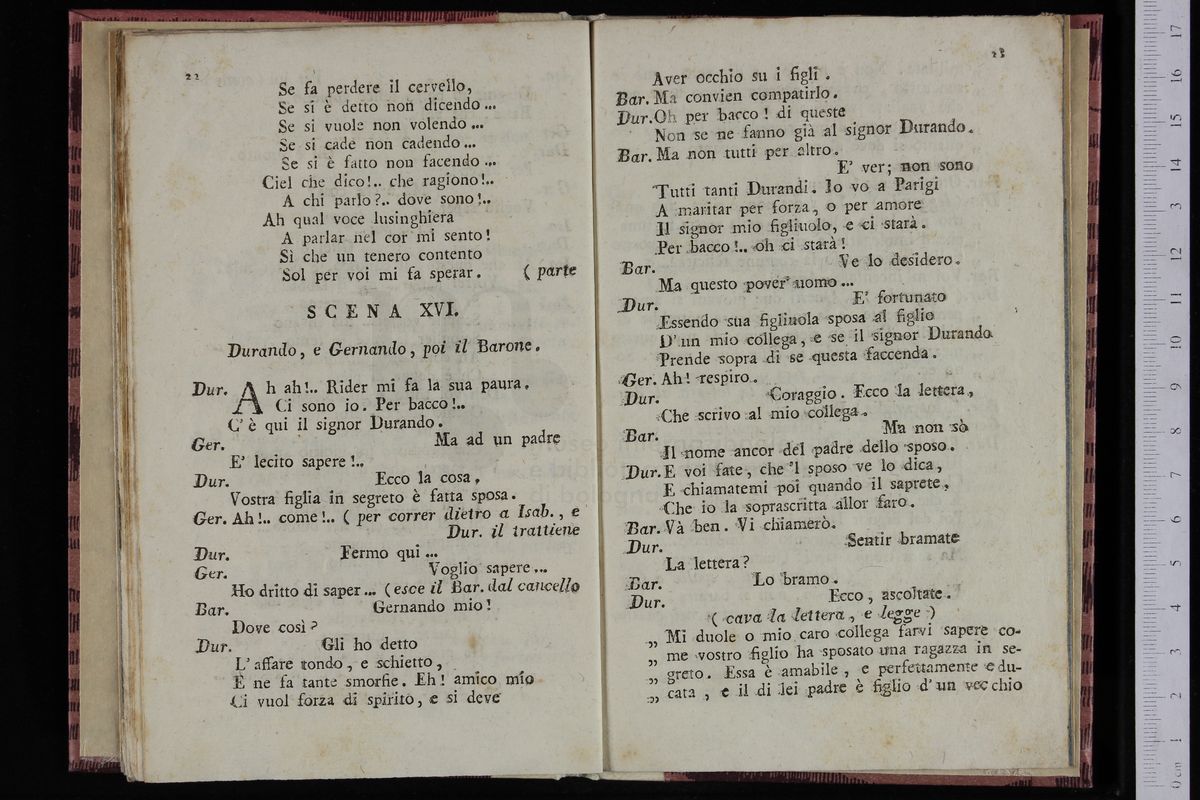 22
Se fa perdere il cervello,
Se si è detto non dicendo...
Se si vuole non volendo...
Se si cade non cadendo...
Se si è fatto non facendo...
Ciel che dico!.. che ragiono!..
A chi parlo?.. dove sono!..
Ah qual voce lusinghiera
A parlar nel cor mi sento!
Sì che un tenero contento
Sol per voi mi fa sperar. ( parte
SCENA XVI.
Durando, e Gernando, poi il Barone.
Dur. Ah ah!.. Rider mi fa la sua paura.
Ci sono io. Per bacco!..
C'è qui il signor Durando.
Ger. Ma ad un padre
E' lecito sapere!..
Dur. Ecco la cosa.
Vostra figlia in segreto è fatta sposa.
Ger. Ah!.. come!.. ( per correr dietro a Isab., e
Dur. il trattiene
Dur. Fermo qui...
Ger. Voglio sapere...
Ho dritto di saper... (esce il Bar. dal cancello
Bar. Gernando mio!
Dove così?
Dur. Gli ho detto
L'affare tondo, e schietto,
E ne fa tante smorfie. Eh! amico mio
Ci vuol forza di spirito, e si deve
23
Aver occhio su i figli.
Bar. Ma convien compatirlo.
Dur. Oh per bacco! di queste
Non se ne fanno già al signor Durando.
Bar. Ma non tutti per altro.
E' ver; non sono
Tutti tanti Durandi. Io vo a Parigi
A maritar per forza, o per amore
Il signor mio figliuolo, e ci starà.
Per bacco!.. oh ci starà!
Bar. Ve lo desidero.
Ma questo pover' uomo...
Dur. E' fortunato
Essendo sua figliuola sposa al figlio
D'un mio collega, e se il signor Durando
Prende sopra di se questa faccenda.
Ger. Ah! respiro.
Dur. Coraggio. Ecco la lettera,
Che scrivo al mio collega.
Bar. Ma non sò
Il nome ancor del padre dello sposo.
Dur. E voi fate, che 'l sposo ve lo dica,
E chiamatemi poi quando il saprete,
Che io la soprascritta allor farò.
Bar. Và ben. Vi chiamerò.
Dur. Sentir bramate
La lettera?
Bar. Lo bramo.
Dur. Ecco, ascoltate.
( cava la lettera, e legge )
„ Mi duole o mio caro collega farvi sapere co-
„ me vostro figlio ha sposato una ragazza in se-
„ greto. Essa è amabile, e perfettamente edu-
„ cata, e il di lei padre è figlio d'un vecchio